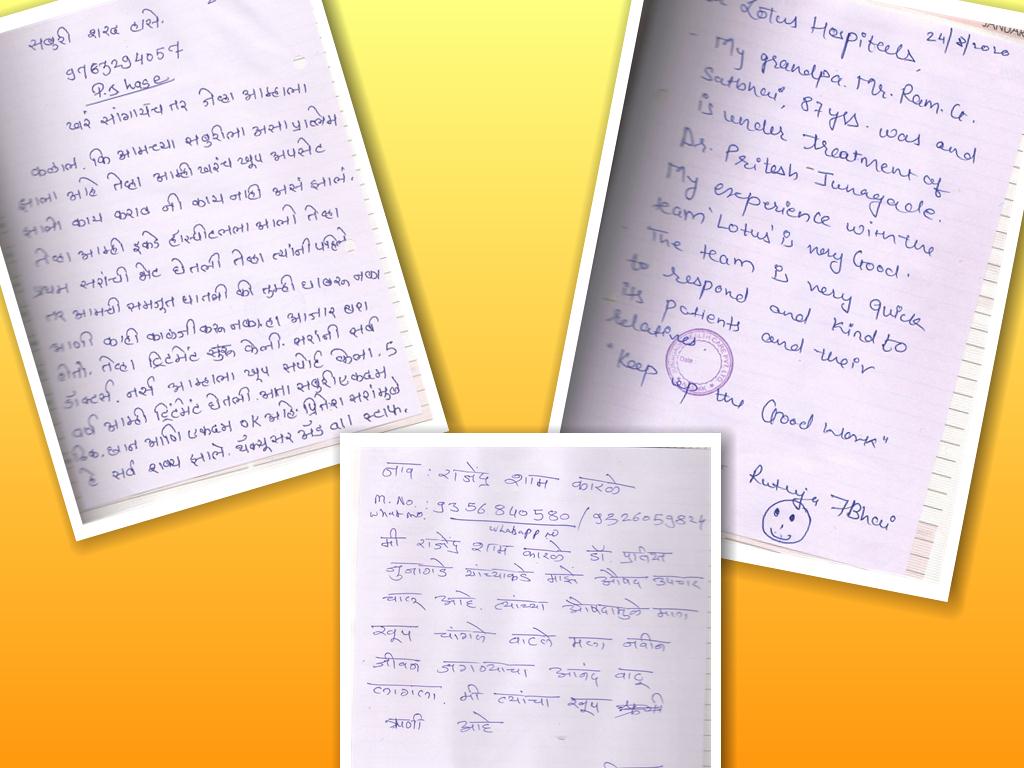 सबुरी शरद हासे.
9763294057
P.S hase
खरं सांगायचं तर जेव्हा आम्हाला
कळालं. कि आमच्या सबुरीला असा प्राब्लेम
झाला आहे तेव्हा आम्ही खरंच खूप अपसेट
झालो काय कराव नी काय नाही असं झालं.
तेव्हा आम्ही इकडे हॉस्पीटलला आलो तेव्हा
प्रथम सरांची भेट घेतली तेव्हा त्यांनी पहिले
तर आमची समजूत घातली की तुम्ही घाबरू नका
आणी काही काळजी करू नका हा आजार बरा
होतो. तेव्हा ट्रिटमेंट सुरू केली. सरांनी सर्व
डॉक्टर्स. नर्स आम्हाला खूप सपोर्ट केला. 5
वर्ष आम्ही ट्रिटमेंट घेतली. आता सबुरी एकदम
ठिक. छान आणि एकदम OK आहे. प्रितेश सरांमुळे
हे सर्व शक्य झाले. थँक्यू सर अँड all स्टाफ.
JANUAR
24/8/2020
Lotus Hospiteels,
- My grandpa. Mr. Ram. G.
Satbhai, 87 yrs. was and
is under treatment of
Dr. Pritesh Junagade.
My experience with the
team 'Lotus' is very Good.
- The team is very quick
to respond and kind to
its patients and their
relatives.
"Keep up the Good work"
Rutuja
नाव : राजेंद्र शाम कारले
M. No. : 9356840580 / 9326059824
What no. whatsapp no
मी राजेंद्र शाम कारले डॉ प्रितेश
जुनागडे यांच्याकडे माझे औषद उपचार
चालू आहे. त्यांच्या औषदामुळे मला
खूप चांगले वाटले मला नवीन
जीवन जगण्याचा आनंद वाटू
लागला. मी त्यांचा खूप
ऋणी आहे